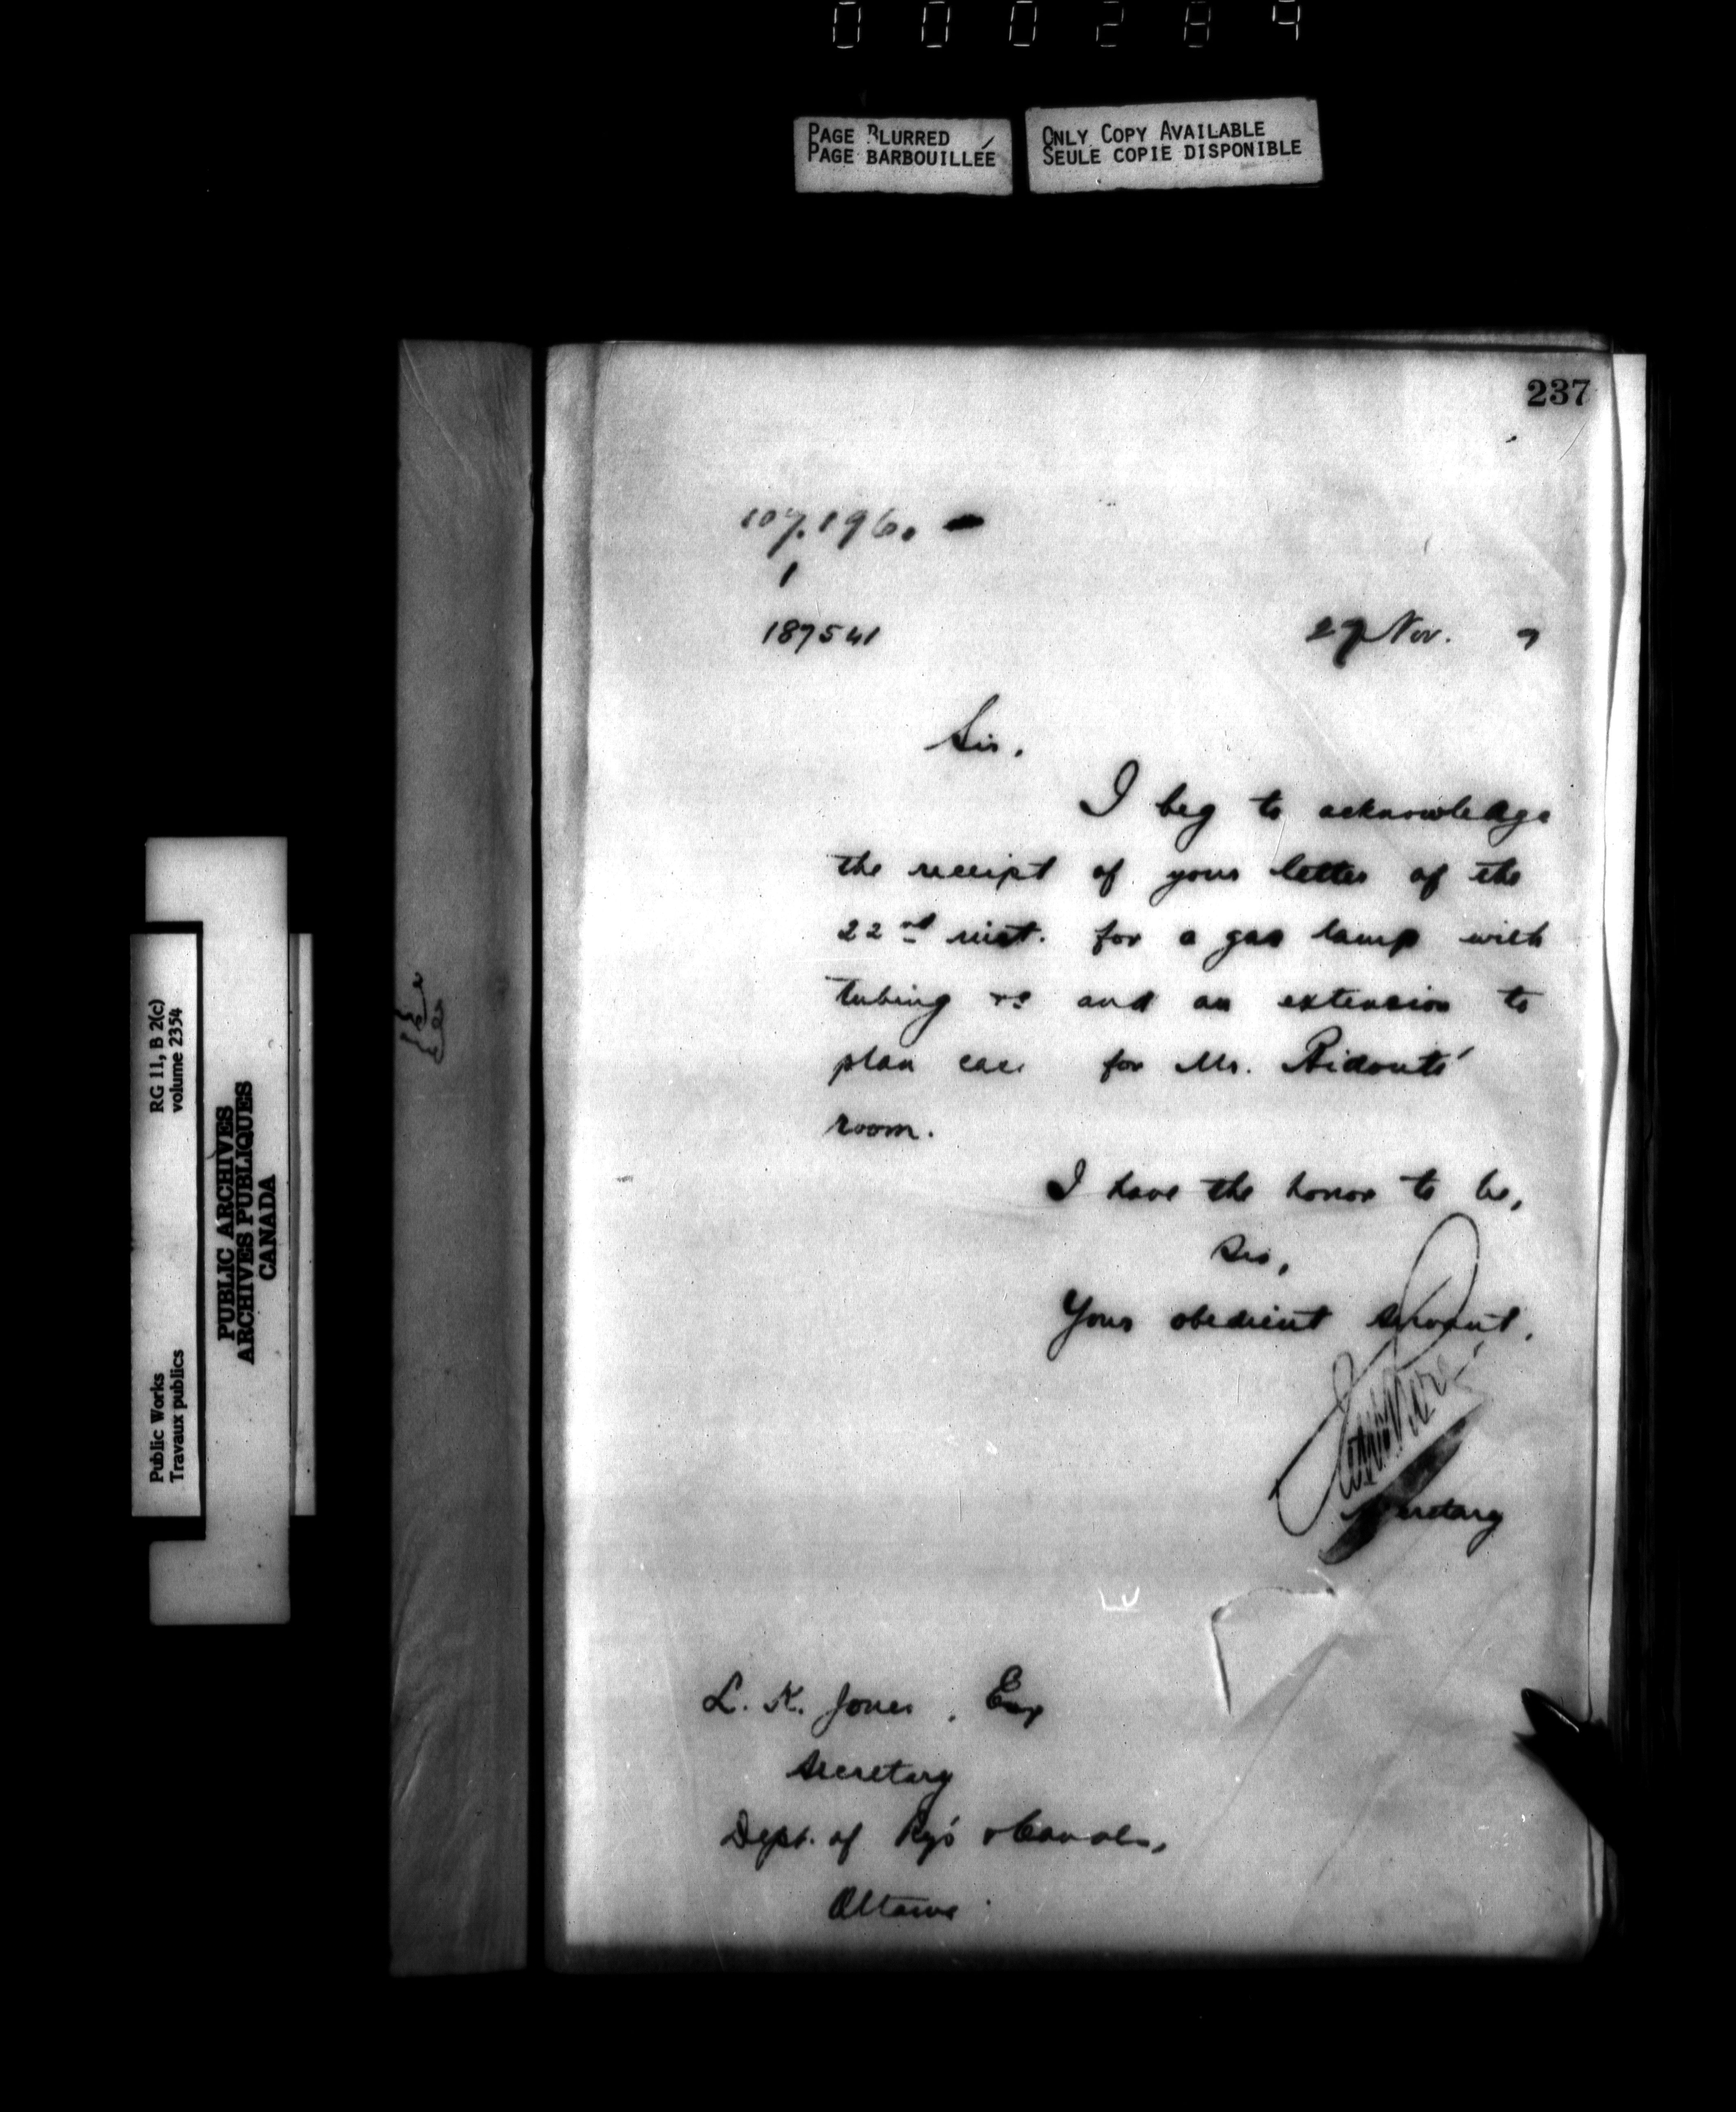 000284
PAGE BLURRED
PAGE BARBOUILLÉE
ONLY COPY AVAILABLE
SEULE COPIE DISPONIBLE
237
107.196.
1
187541
27 Nov. 9
Sir.
I beg to acknowledge
the receipt of your letter of the
22nd inst. for a gas lamp with
tubing &c and an extension to
plan case for Mr. Ridouts'
room.
I have the honor to be,
Sir,
Your obedient servant,
Secretary
L. K. Jones, Esq
Secretary
Dept. of Ry's & Canals,
Ottawa
RG 11, B 2(c)
volume 2354
Public Works
Travaux publics
PUBLIC ARCHIVES
ARCHIVES PUBLIQUES
CANADA